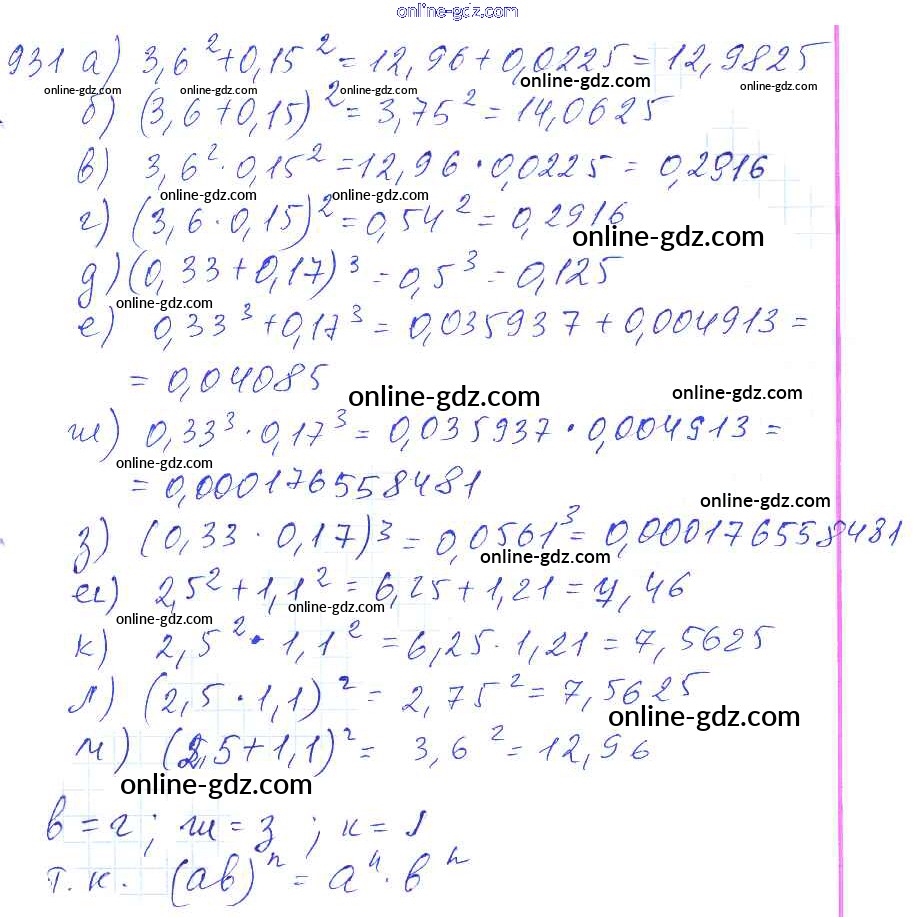 online-gdz.com
931 а) 3,6² + 0,15² = 12,96 + 0,0225 = 12,9825
online-gdz.com online-gdz.com online-gdz.com online-gdz.com
б) (3,6 + 0,15)² = 3,75² = 14,0625
в) 3,6² · 0,15² = 12,96 · 0,0225 = 0,2916
online-gdz.com online-gdz.com
г) (3,6 · 0,15)² = 0,54² = 0,2916
online-gdz.com
д) (0,33 + 0,17)³ = 0,5³ = 0,125
online-gdz.com
е) 0,33³ + 0,17³ = 0,035937 + 0,004913 =
= 0,04085
online-gdz.com online-gdz.com
ж) 0,33³ · 0,17³ = 0,035937 · 0,004913 =
online-gdz.com
= 0,000176558481
online-gdz.com
з) (0,33 · 0,17)³ = 0,0561³ = 0,000176558481
online-gdz.com
и) 2,5² + 1,1² = 6,25 + 1,21 = 7,46
online-gdz.com
online-gdz.com
к) 2,5² · 1,1² = 6,25 · 1,21 = 7,5625
л) (2,5 · 1,1)² = 2,75² = 7,5625
online-gdz.com
м) (2,5 + 1,1)² = 3,6² = 12,96
online-gdz.com
в = г ; ж = з ; к = л
т.к. (ab)ⁿ = aⁿ · bⁿ